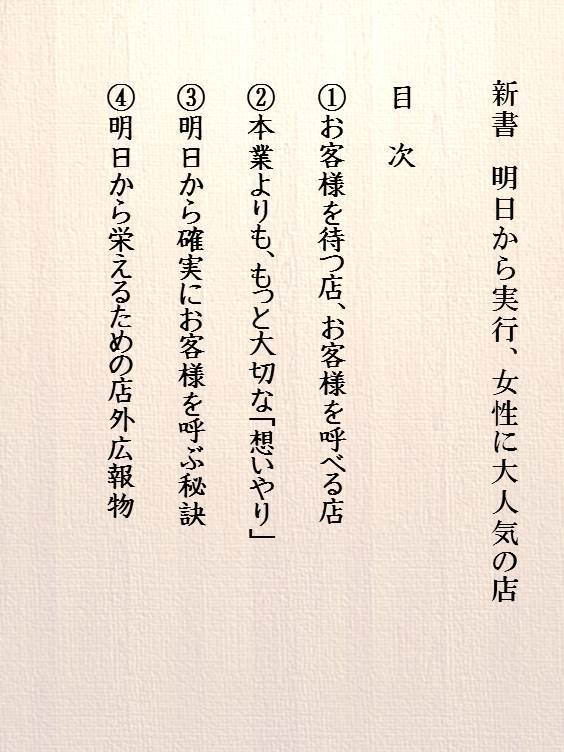 新書　明日から実行、女性に大人気の店
目　次
①お客様を待つ店、お客様を呼べる店
②本業よりも、もっと大切な「想いやり」
③明日から確実にお客様を呼ぶ秘訣
④明日から栄えるための店外広報物